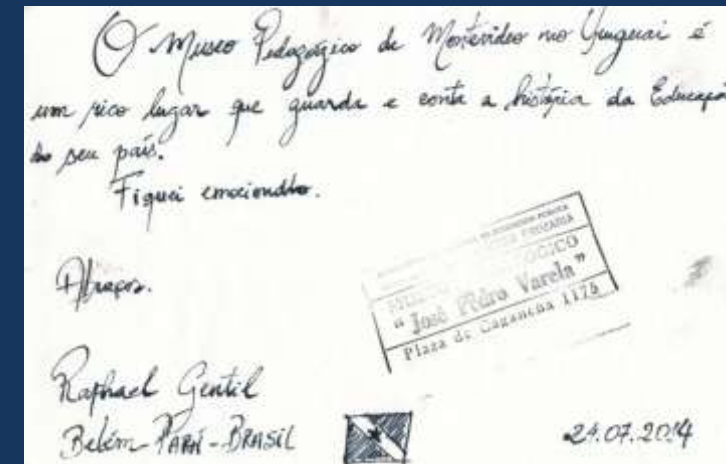 O Museo Pedagógico de Montevideo no Uruguai é
um rico lugar que guarda e conta a história da Educação
do seu país.
Fiquei emocionado.
Abraços.
"José Pedro Varela"
Plaza de Cagancha 1175
Raphael Gentil
Belém-PARÁ-BRASIL
24.07.2014